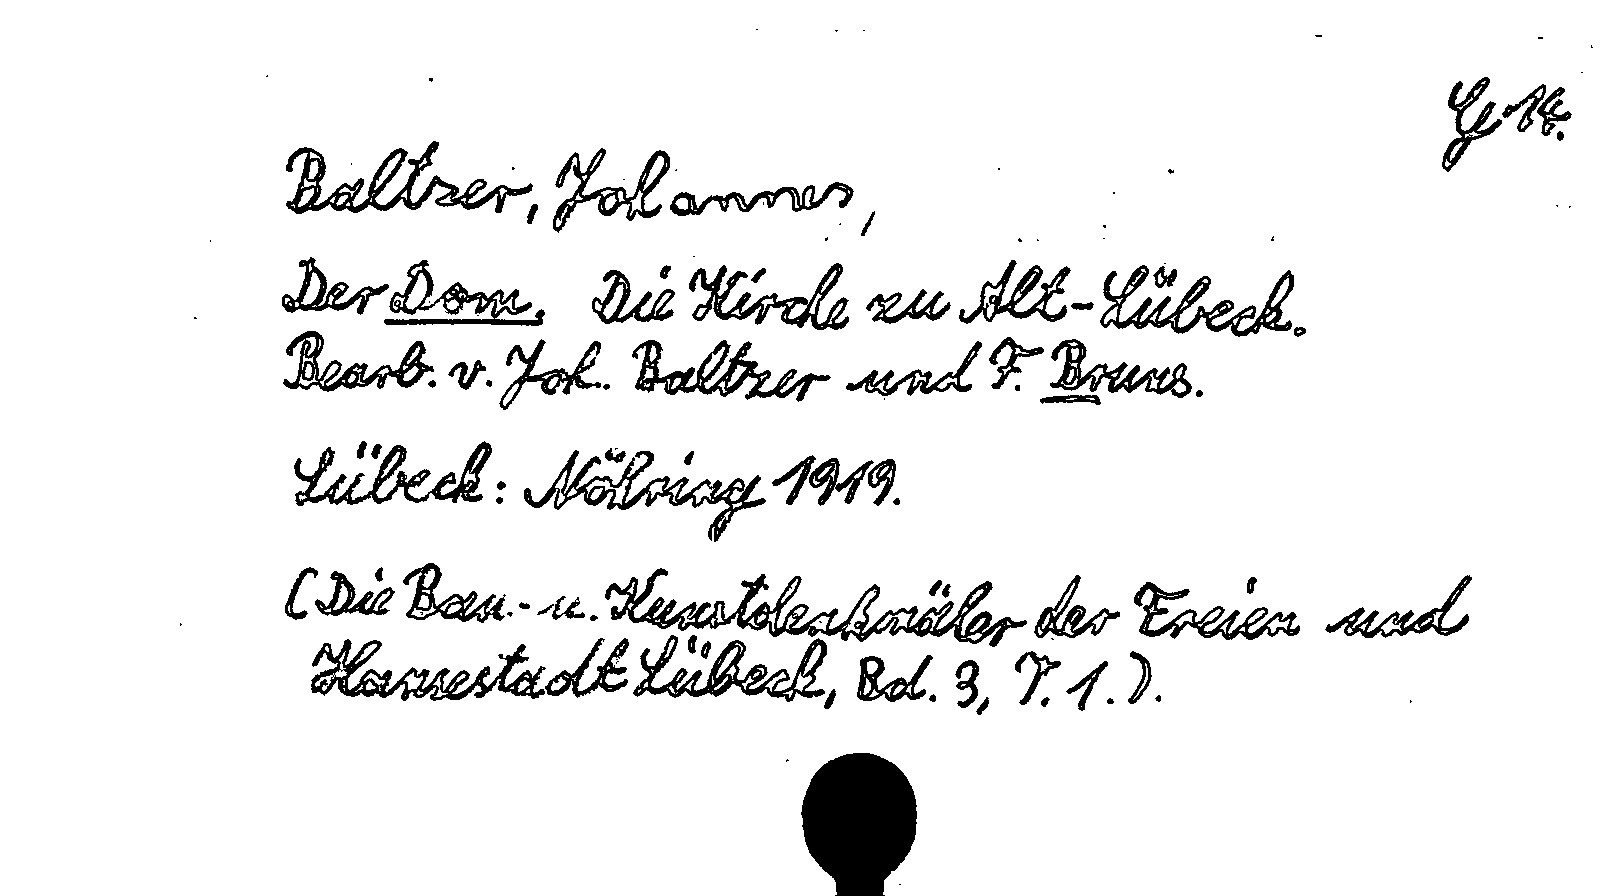 G 14.
Baltzer, Johannes,
Der Dom. Die Kirche zu Alt-Lübeck.
Bearb. v. Joh. Baltzer und F. Bruns.
Lübeck: Nöhring 1919.
(Die Bau- u. Kunstdenkmäler der Freien und
Hansestadt Lübeck, Bd. 3, T. 1.).